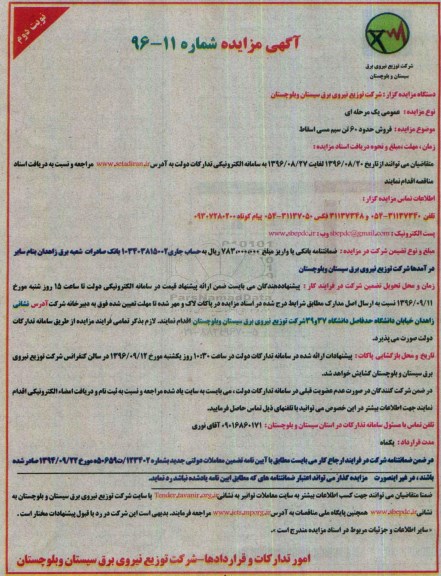 نوبت دوم
آگهی مزایده شماره ۱۱-۹۶
شرکت توزیع نیروی برق
سیستان و بلوچستان
دستگاه مزایده گزار : شرکت توزیع نیروی برق سیستان وبلوچستان
نوع مزایده : عمومی یک مرحله ای
موضوع مزایده : فروش حدود ۶۰ تن سیم مسی اسقاط
زمان ، مهلت،مبلغ و نحوه دریافت اسناد مزایده :
متقاضیان می توانند ازتاریخ ۱۳۹۶/۰۸/۲۰ لغایت ۱۳۹۶/۰۸/۲۷ به سامانه الکترونیکی تدارکات دولت به آدرس www.setadiran.ir مراجعه و نسبت به دریافت اسناد
مناقصه اقدام نمایند
اطلاعات تماس مزایده گزار :
تلفن ۳۱۱۳۷۳۲۰-۰۵۴ و ۳۱۱۳۷۳۲۸ فکس ۳۱۱۳۷۰۵۰-۰۵۴ پیام کوتاه ۰۹۳۰۷۲۸۰۲۰۰
پست الکترونیک : sbepdc@gmail.com وب : www.sbepdc.ir
مبلغ و نوع تضمین شرکت در مزایده : ضمانتنامه بانکی یا واریز مبلغ ریال به حساب جاری ۰۱۰۲۳۰۳۸۱۵۰۰۲ بانک صادرات شعبه برق زاهدان بنام سایر
در آمدها شرکت توزیع نیروی برق سیستان وبلوچستان
زمان و محل تحویل تضمین شرکت در فرایند کار : پیشنهاددهندگان می بایست ضمن ارائه پیشنهاد قیمت در سامانه الکترونیکی دولت تا ساعت ۱۵ روز شنبه مورخ
۱۳۹۶/۰۹/۱۱ نسبت به ارسال اصل مدارک مطابق شرایط درج شده در اسناد مزایده در پاکات لاک و مهر شده تا مهلت تعیین شده فوق به دبیرخانه شرکت آدرس نشانی
زاهدان خیابان دانشگاه حدفاصل دانشگاه ۳۷و۳۹ شرکت توزیع نیروی برق سیستان وبلوچستان اقدام نمایند. لازم بذکر تمامی فرایند مزایده از طریق سامانه تدارکات
دولت صورت می پذیرد.
تاریخ و محل بازگشایی پاکات : پیشنهادات ارائه شده در سامانه تدارکات دولت در ساعت ۱۰:۳۰ روز یکشنبه مورخ ۱۳۹۶/۰۹/۱۲ در سالن کنفرانس شرکت توزیع نیروی
برق سیستان و بلوچستان گشایش خواهد شد.
در ضمن شرکت کنندگان در صورت عدم عضویت قبلی در سامانه تدارکات دولت ، می بایست به سایت یاد شده مراجعه و نسبت به ثبت نام و دریافت امضاء الکترونیکی اقدام
نمایند جهت اطلاعات بیشتر در این خصوص می توانید با تلفنهای ذیل تماس حاصل فرمایید.
تلفن تماس با مسئول سامانه تدارکات در استان سیستان و بلوچستان : ۰۹۰۱۶۸۶۰۱۷۱ آقای نوری
مدت قرارداد: یکماه
در ضمن ضمانتنامه شرکت در فرایند ارجاع کار می بایست مطابق با آیین نامه تضمین معاملات دولتی جدید بشماره ۱۲۳۴۰۲/ت۵۰۶۵۹ه مورخ ۱۳۹۴/۰۹/۲۲ صادر شده
باشند ، در غیر اینصورت مزایده گذار می تواند اعتبار ضمانتنامه های که مطابق آیین نامه یادشده نباشد رد نماید.
ضمنا متقاضیان می توانند جهت کسب اطلاعات بیشتر به سایت معاملات توانیر به نشانی: Tender.tavanir.org.ir یا سایت شرکت توزیع نیروی برق سیستان و بلوچستان به
نشانی www.sbepdc.ir همچنین پایگاه ملی مناقصات به آدرس www.iets.mporg.ir مراجعه فرمایند. بدیهی است این شرکت در رد یا قبول پیشنهادات مختار است .
« سایر اطلاعات و جزئیات مربوط در اسناد مزایده مندرج است »
امور تدارکات و قراردادها-شرکت توزیع نیروی برق سیستان وبلوچستان